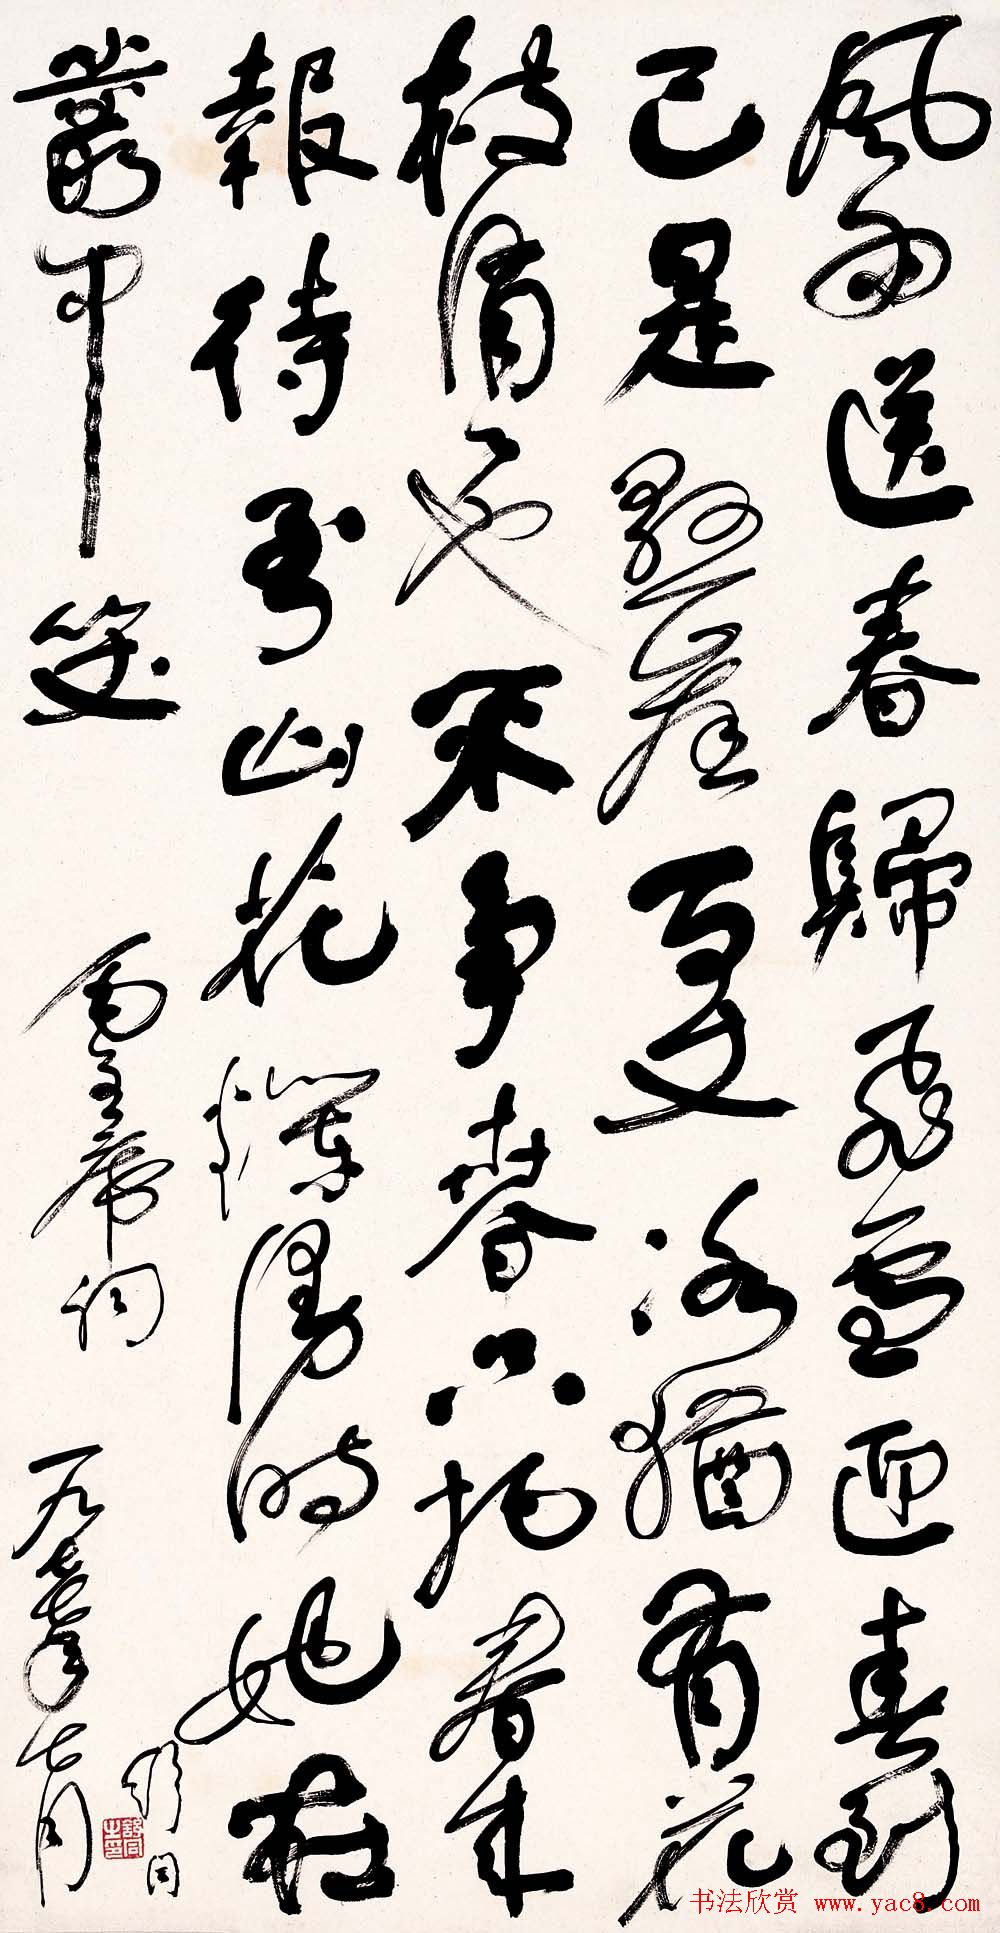 風雨送春歸飛雪迎春到
已是懸崖百丈冰猶有花
枝俏也不争春只把春来
報待到山花爛漫時她在
叢中笑 毛主席詞 一九七七年七月
舒同
舒同之印
书法欣赏 www.yac8.com